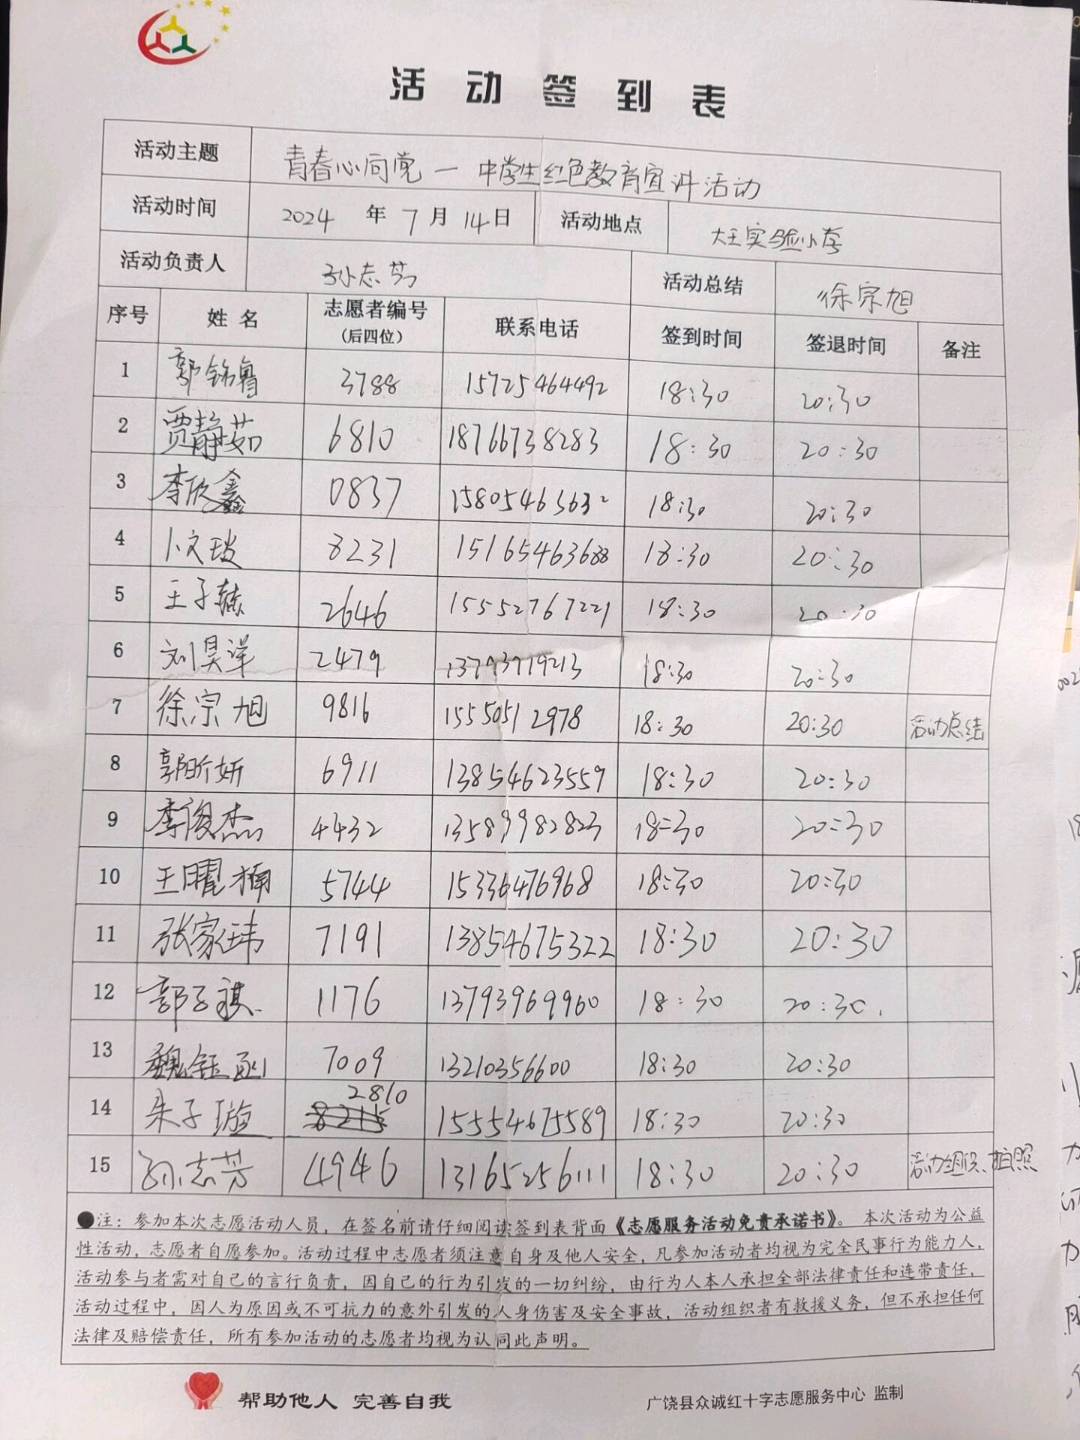 活动签到表
活动主题 青春心向党一中学生红色教育宣讲活动
活动时间 2024 年 7 月 14 日 活动地点 大王实验小学
活动负责人 孙志芳 活动总结 徐宗旭
序号 姓名 志愿者编号(后四位) 联系电话 签到时间 签退时间 备注
1 郭锦鲁 3788 15725464492 18:30 20:30
2 贾静茹 6810 18766738283 18:30 20:30
3 李欣鑫 0837 15805463632 18:30 20:30
4 卜文琰 8231 15165463688 18:30 20:30
5 王子赫 2646 15552767221 18:30 20:30
6 刘昊洋 2479 13793719213 18:30 20:30
7 徐宗旭 9816 15550512978 18:30 20:30 活动总结
8 郭昕妍 6911 13854623559 18:30 20:30
9 李俊杰 4432 13589982823 18:30 20:30
10 王曜楠 5744 15336476968 18:30 20:30
11 张家玮 7191 13854675322 18:30 20:30
12 郭子祺 1176 13793969960 18:30 20:30
13 魏钰 7009 13210356600 18:30 20:30
14 朱子璇 2810 15554675589 18:30 20:30
15 孙志芳 4946 13165256111 18:30 20:30 活动组织、拍照
●注：参加本次志愿活动人员，在签名前请仔细阅读签到表背面《志愿服务活动免责承诺书》。本次活动为公益
性活动，志愿者自愿参加。活动过程中志愿者须注意自身及他人安全，凡参加活动者均视为完全民事行为能力人，
活动参与者需对自己的言行负责，因自己的行为引发的一切纠纷，由行为人本人承担全部法律责任和连带责任，
活动过程中，因人为原因或不可抗力的意外引发的人身伤害及安全事故，活动组织者有救援义务，但不承担任何
法律及赔偿责任，所有参加活动的志愿者均视为认同此声明。
帮助他人 完善自我
广饶县众诚红十字志愿服务中心 监制